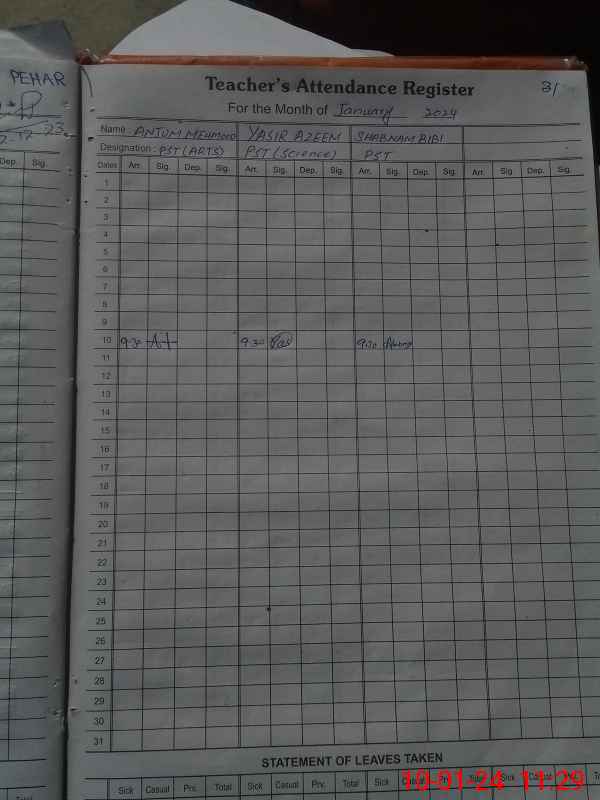 PEHAR
23
Dep. Sig.
Teacher's Attendance Register
31
For the Month of January 2024
Name : ANJUM MEHMOOD YASIR AZEEM SHABNAM BIBI
Designation : PST (ARTS) PST (Science) PST
Dates Arr. Sig. Dep. Sig. Arr. Sig. Dep. Sig. Arr. Sig. Dep. Sig. Arr. Sig. Dep. Sig.
1
2
3
4
5
6
7
8
9
10 9:30 9:30 9:30
11
12
13
14
15
16
17
18
19
20
21
22
23
24
25
26
27
28
29
30
31
STATEMENT OF LEAVES TAKEN
Total Sick Casual Prv. Total Sick Casual Prv. Total Sick Casual Prv. Total Sick Casual Prv.
10-01-24 11:29